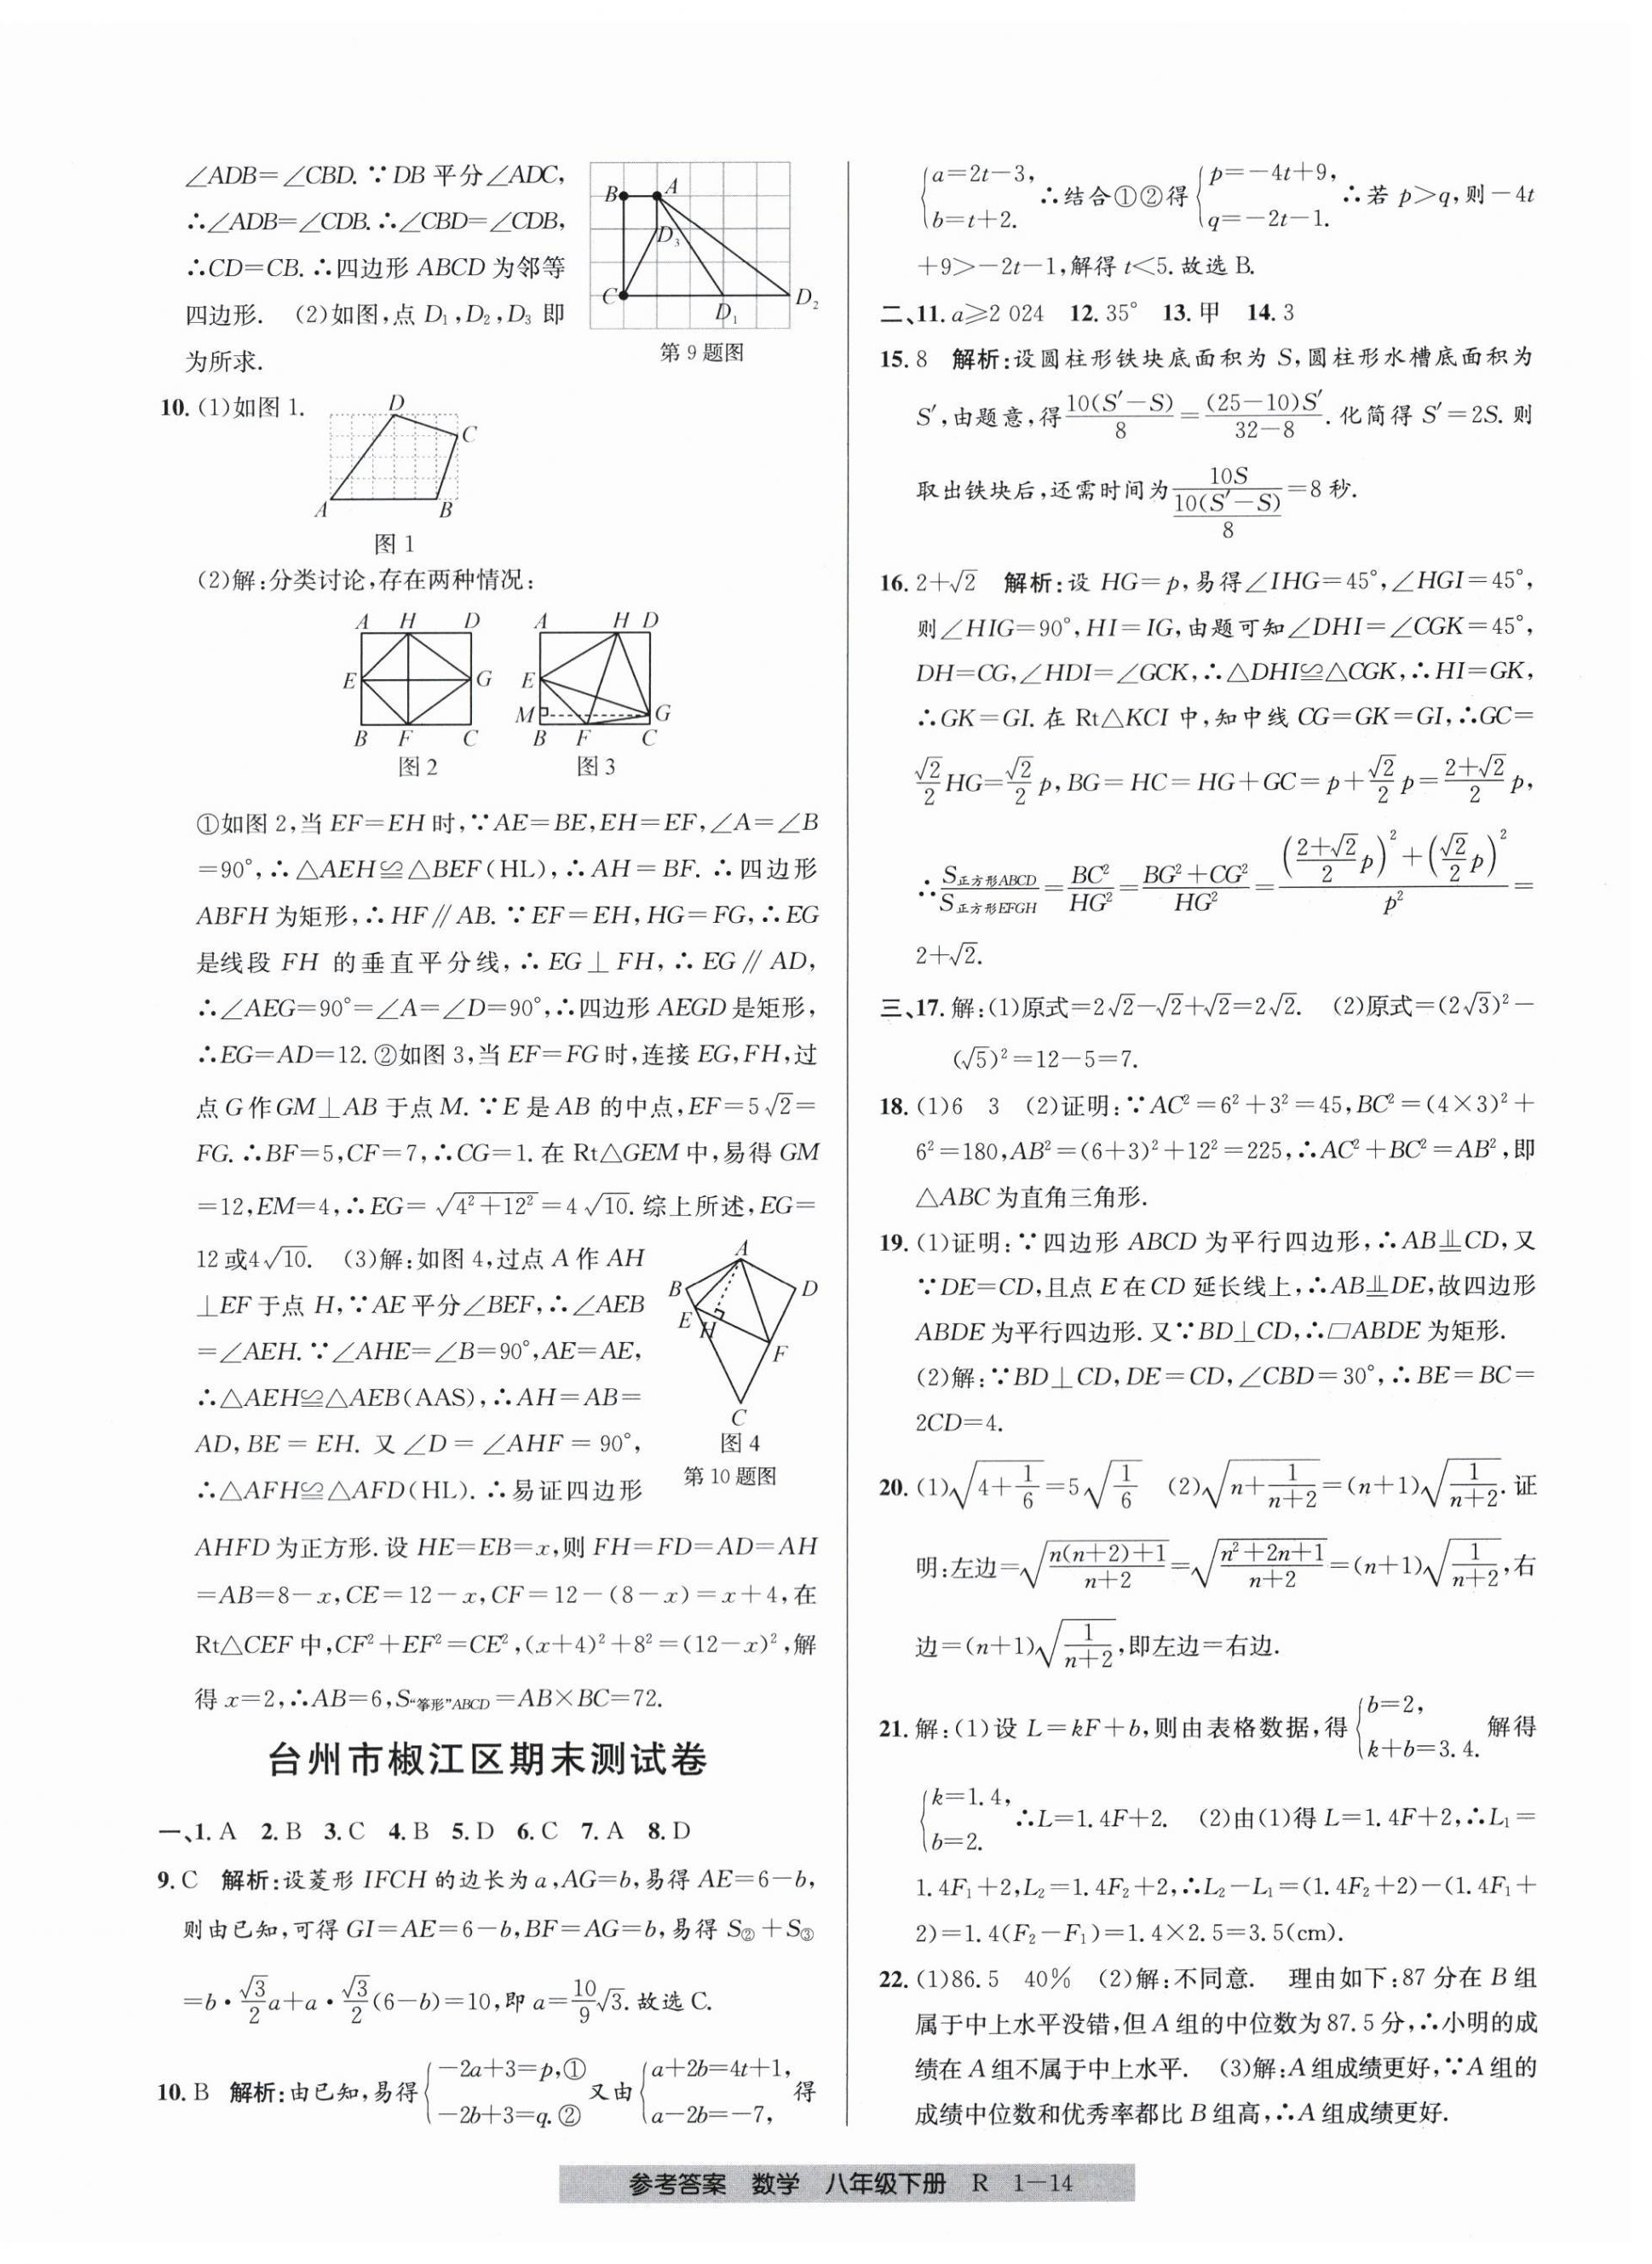 ∠ADB=∠CBD. ∵DB 平分∠ADC,
∴∠ADB=∠CDB. ∴∠CBD=∠CDB,
∴CD=CB. ∴四边形 ABCD 为邻等
四边形. (2)如图,点 D₁,D₂,D₃ 即
为所求.
B A D₃ C D₁ D₂
第 9 题图
10. (1)如图 1.
D C A B
图 1
(2)解:分类讨论,存在两种情况:
A H D E G B F C
图 2
A H D E M G B F C
图 3
①如图 2,当 EF=EH 时,∵AE=BE,EH=EF,∠A=∠B
=90°,∴△AEH≌△BEF(HL),∴AH=BF. ∴四边形
ABFH 为矩形,∴HF∥AB. ∵EF=EH,HG=FG,∴EG
是线段 FH 的垂直平分线,∴EG⊥FH,∴EG∥AD,
∴∠AEG=90°=∠A=∠D=90°,∴四边形 AEGD 是矩形,
∴EG=AD=12. ②如图 3,当 EF=FG 时,连接 EG,FH,过
点 G 作 GM⊥AB 于点 M. ∵E 是 AB 的中点,EF=5√2=
FG. ∴BF=5,CF=7,∴CG=1. 在 Rt△GEM 中,易得 GM
=12,EM=4,∴EG=√(4²+12²)=4√10. 综上所述,EG=
12 或4√10. (3)解:如图 4,过点 A 作 AH
⊥EF 于点 H,∵AE 平分∠BEF,∴∠AEB
=∠AEH. ∵∠AHE=∠B=90°,AE=AE,
∴△AEH≌△AEB(AAS),∴AH=AB=
AD,BE=EH. 又∠D=∠AHF=90°,
∴△AFH≌△AFD(HL). ∴易证四边形
A B D E H F C
图 4
第 10 题图
AHFD 为正方形. 设 HE=EB=x,则 FH=FD=AD=AH
=AB=8-x,CE=12-x,CF=12-(8-x)=x+4,在
Rt△CEF 中,CF²+EF²=CE²,(x+4)²+8²=(12-x)²,解
得 x=2,∴AB=6,S“筝形”ABCD=AB×BC=72.
台州市椒江区期末测试卷
一、1. A 2. B 3. C 4. B 5. D 6. C 7. A 8. D
9. C 解析:设菱形 IFCH 的边长为 a,AG=b,易得 AE=6-b,
则由已知,可得 GI=AE=6-b,BF=AG=b,易得 S②+S③
=b·√3/2a+a·√3/2(6-b)=10,即 a=10/9√3. 故选 C.
10. B 解析:由已知,易得{-2a+3=p,① -2b+3=q. ② 又由{a+2b=4t+1, a-2b=-7, 得
{a=2t-3, b=t+2. ∴结合①②得{p=-4t+9, q=-2t-1. ∴若 p>q,则-4t
+9>-2t-1,解得 t<5. 故选 B.
二、11. a≥2 024 12. 35° 13. 甲 14. 3
15. 8 解析:设圆柱形铁块底面积为 S,圆柱形水槽底面积为
S′,由题意,得10(S′-S)/8=(25-10)S′/(32-8). 化简得 S′=2S. 则
取出铁块后,还需时间为10S/(10(S′-S)/8)=8 秒.
16. 2+√2 解析:设 HG=p,易得∠IHG=45°,∠HGI=45°,
则∠HIG=90°,HI=IG,由题可知∠DHI=∠CGK=45°,
DH=CG,∠HDI=∠GCK,∴△DHI≌△CGK,∴HI=GK,
∴GK=GI. 在 Rt△KCI 中,知中线 CG=GK=GI,∴GC=
√2/2HG=√2/2p,BG=HC=HG+GC=p+√2/2p=(2+√2)/2p,
∴S正方形ABCD/S正方形EFGH=BC²/HG²=(BG²+CG²)/HG²=(((2+√2)/2p)²+(√2/2p)²)/p²=
2+√2.
三、17. 解:(1)原式=2√2-√2+√2=2√2. (2)原式=(2√3)²-
(√5)²=12-5=7.
18. (1)6 3 (2)证明:∵AC²=6²+3²=45,BC²=(4×3)²+
6²=180,AB²=(6+3)²+12²=225,∴AC²+BC²=AB²,即
△ABC 为直角三角形.
19. (1)证明:∵四边形 ABCD 为平行四边形,∴AB⫫CD,又
∵DE=CD,且点 E 在 CD 延长线上,∴AB⫫DE,故四边形
ABDE 为平行四边形. 又∵BD⊥CD,∴□ABDE 为矩形.
(2)解:∵BD⊥CD,DE=CD,∠CBD=30°,∴BE=BC=
2CD=4.
20. (1)√(4+1/6)=5√(1/6) (2)√(n+1/(n+2))=(n+1)√(1/(n+2)). 证
明:左边=√((n(n+2)+1)/(n+2))=√((n²+2n+1)/(n+2))=(n+1)√(1/(n+2)),右
边=(n+1)√(1/(n+2)),即左边=右边.
21. 解:(1)设 L=kF+b,则由表格数据,得{b=2, k+b=3.4. 解得
{k=1.4, b=2. ∴L=1.4F+2. (2)由(1)得 L=1.4F+2,∴L₁=
1.4F₁+2,L₂=1.4F₂+2,∴L₂-L₁=(1.4F₂+2)-(1.4F₁+
2)=1.4(F₂-F₁)=1.4×2.5=3.5(cm).
22. (1)86.5 40% (2)解:不同意. 理由如下:87 分在 B 组
属于中上水平没错,但 A 组的中位数为 87.5 分,∴小明的成
绩在 A 组不属于中上水平. (3)解:A 组成绩更好,∵A 组的
成绩中位数和优秀率都比 B 组高,∴A 组成绩更好.
参考答案 数学 八年级下册 R 1-14